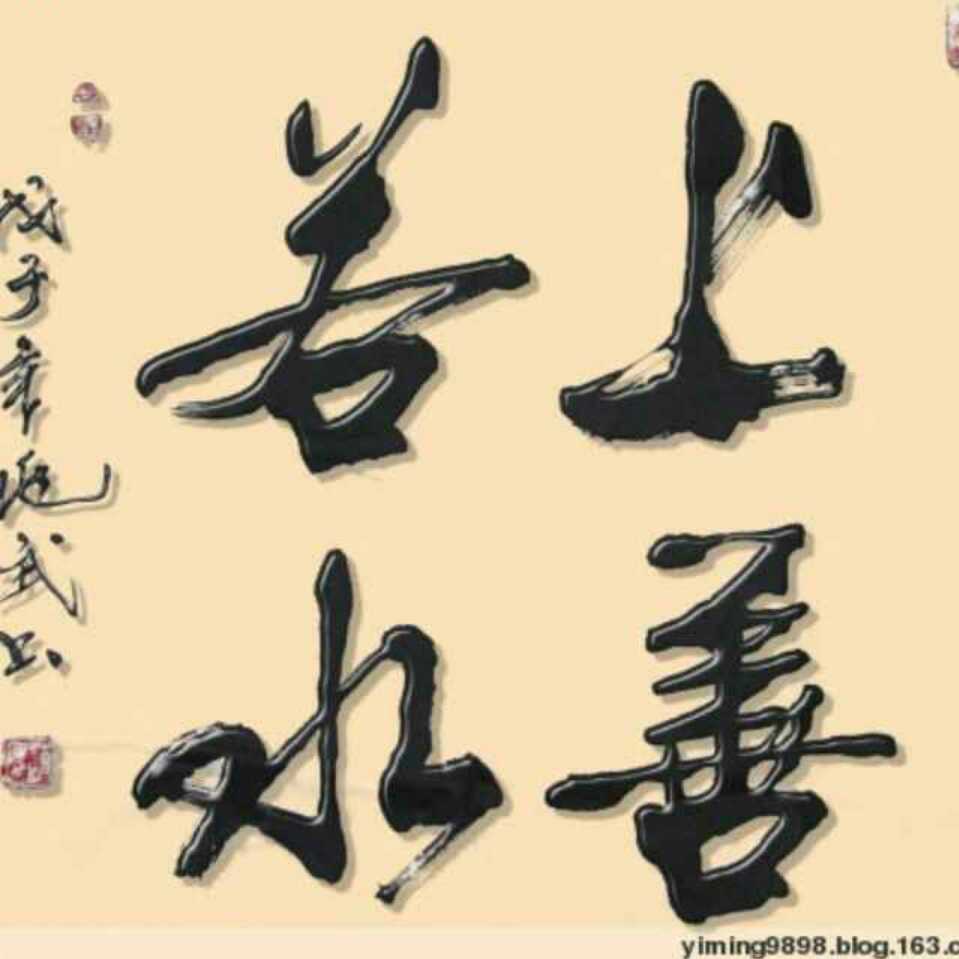 上善
若水
戊子年
武书
yiming9898.blog.163.c